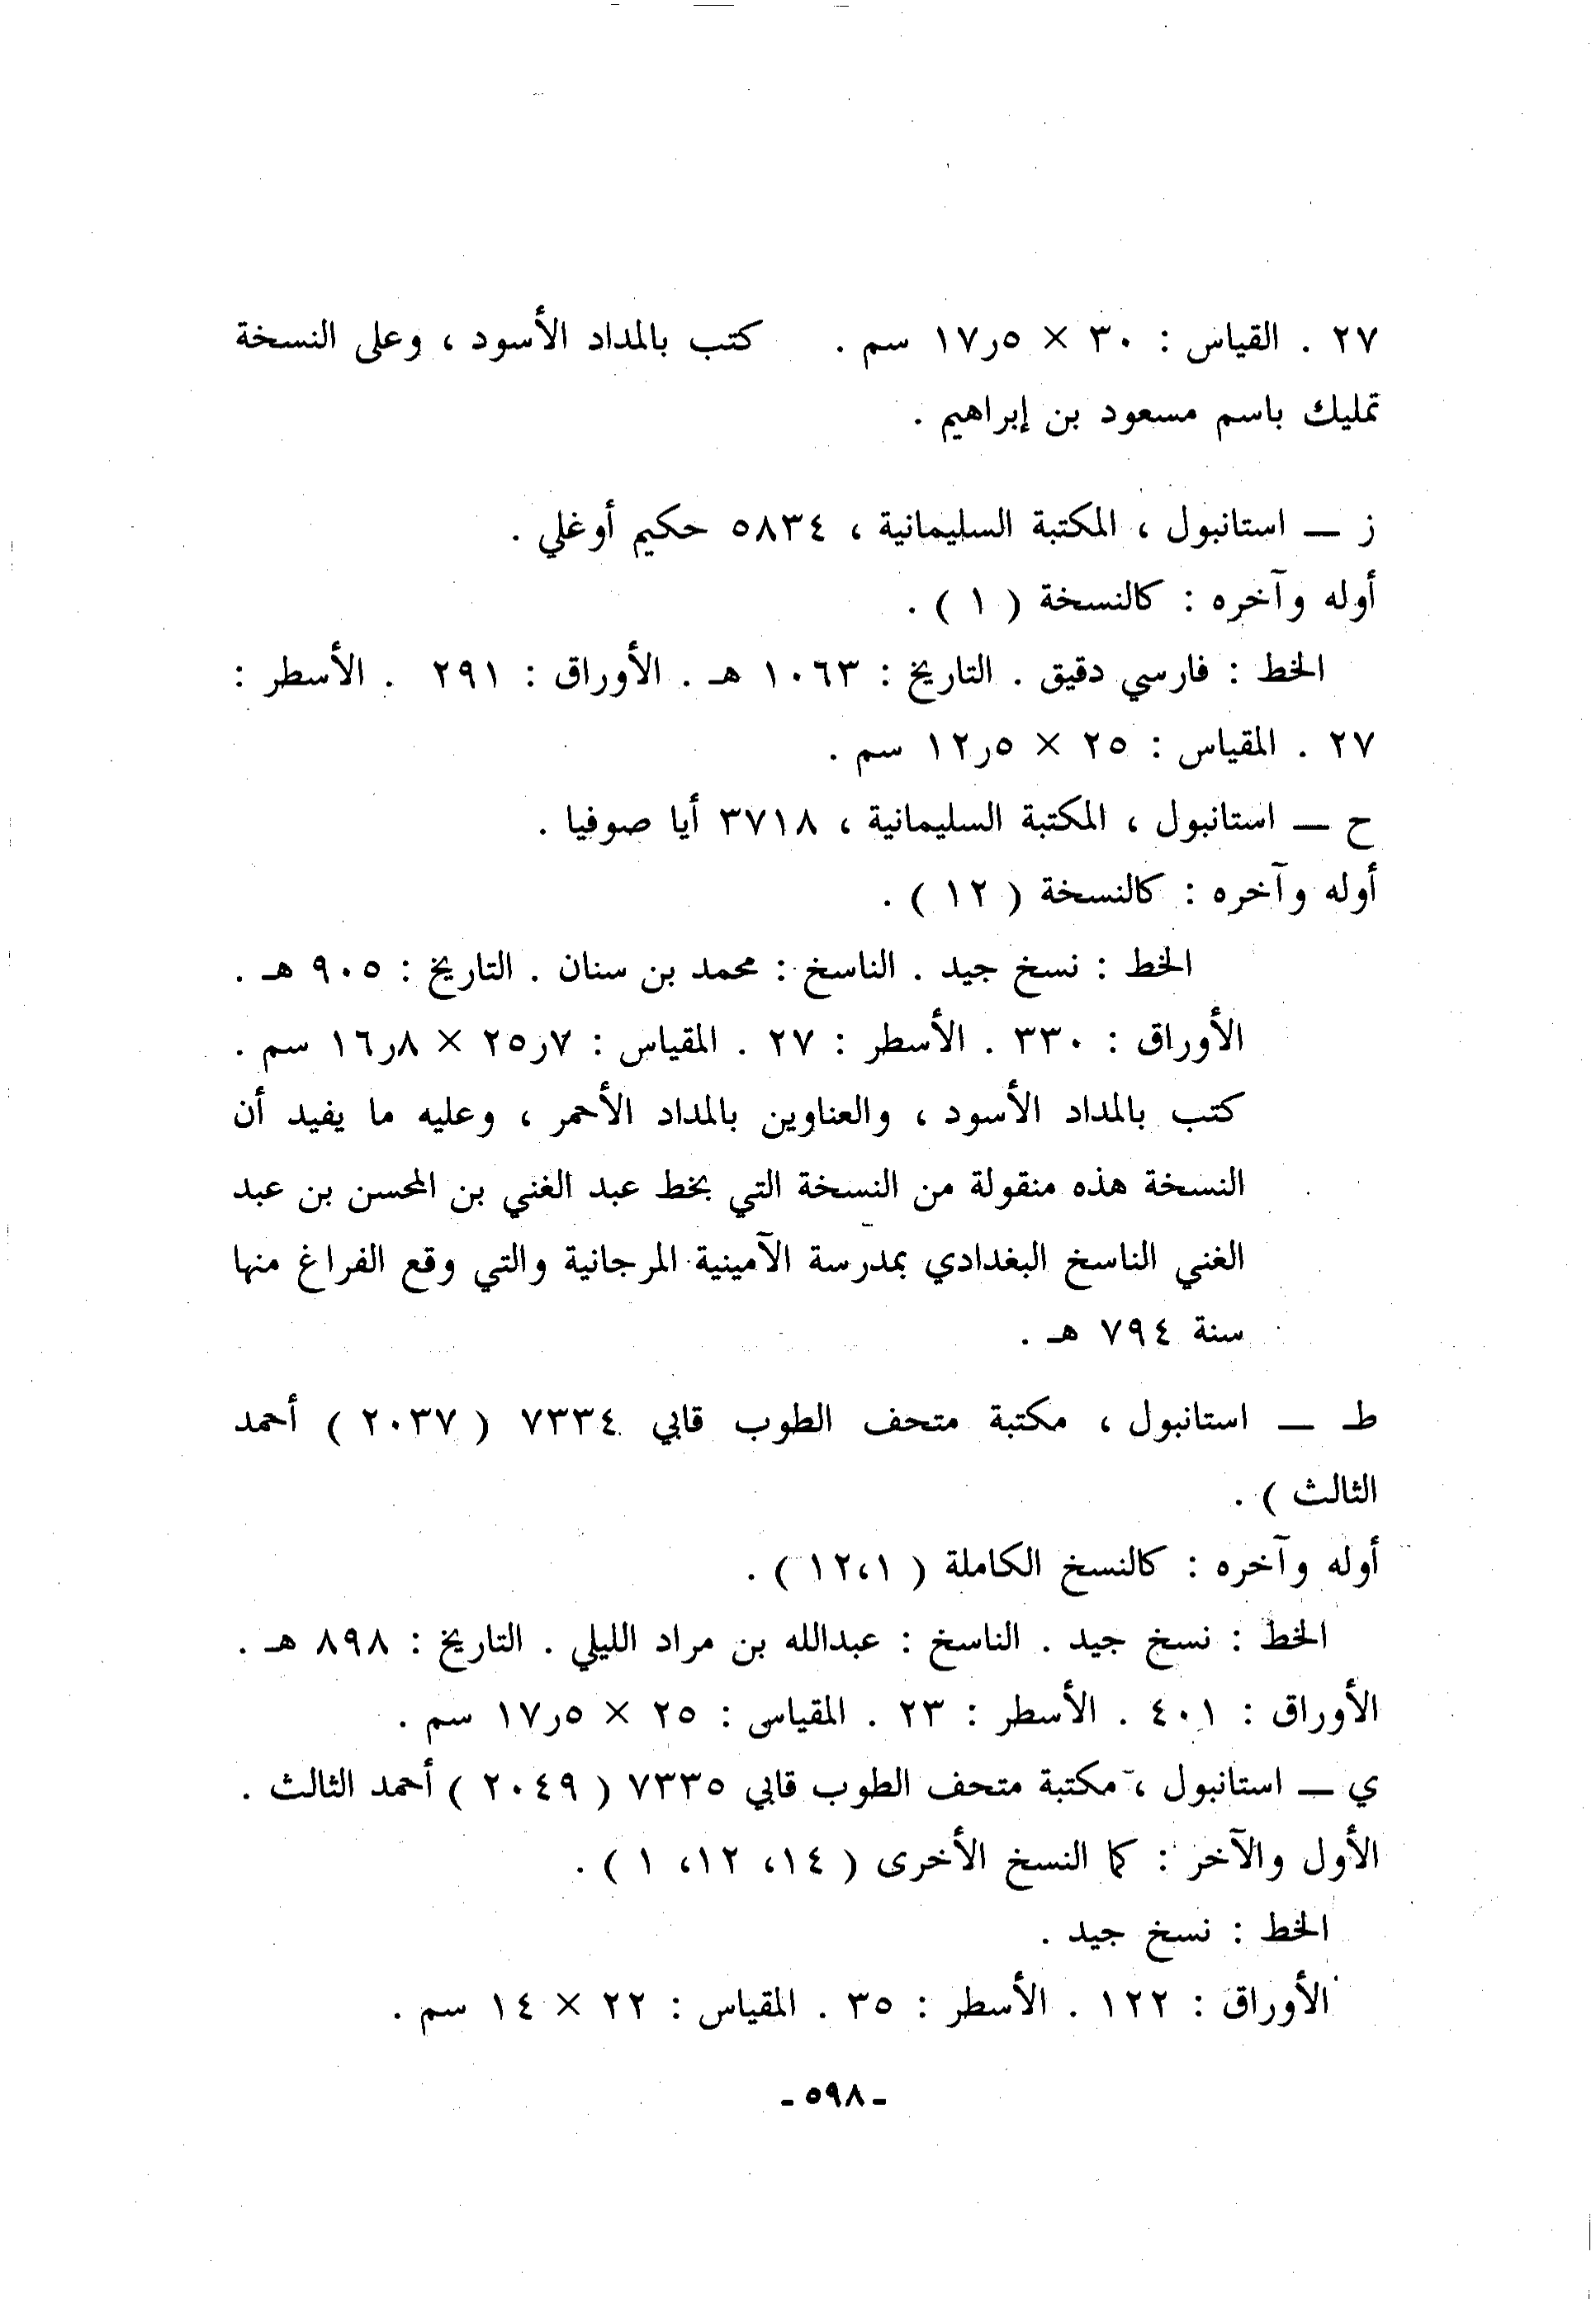 ٢٧ . القياس : ٣٠ × ١٧٫٥ سم . كتب بالمداد الأسود ، وعلى النسخة
تمليك باسم مسعود بن إبراهيم .
ز — استانبول ، المكتبة السليمانية ، ٥٨٣٤ حكيم أوغلي .
أوله وآخره : كالنسخة ( ١ ) .
الخط : فارسي دقيق . التاريخ : ١٠٦٣ هـ . الأوراق : ٢٩١ . الأسطر :
٢٧ . المقياس : ٢٥ × ١٢٫٥ سم .
ح — استانبول ، المكتبة السليمانية ، ٣٧١٨ أيا صوفيا .
أوله وآخره : كالنسخة ( ١٢ ) .
الخط : نسخ جيد . الناسخ : محمد بن سنان . التاريخ : ٩٠٥ هـ .
الأوراق : ٣٣٠ . الأسطر : ٢٧ . المقياس : ٢٥٫٧ × ١٦٫٨ سم .
كتب بالمداد الأسود ، والعناوين بالمداد الأحمر ، وعليه ما يفيد أن
النسخة هذه منقولة من النسخة التي بخط عبد الغني بن المحسن بن عبد
الغني الناسخ البغدادي بمدرسة الآمينية المرجانية والتي وقع الفراغ منها
سنة ٧٩٤ هـ .
ط — استانبول ، مكتبة متحف الطوب قابي ٧٣٣٤ ( ٢٠٣٧ ) أحمد
الثالث ) .
أوله وآخره : كالنسخ الكاملة ( ١،١٢ ) .
الخط : نسخ جيد . الناسخ : عبدالله بن مراد الليلي . التاريخ : ٨٩٨ هـ .
الأوراق : ٤٠١ . الأسطر : ٢٣ . المقياس : ٢٥ × ١٧٫٥ سم .
ي — استانبول ، مكتبة متحف الطوب قابي ٧٣٣٥ ( ٢٠٤٩ ) أحمد الثالث .
الأول والآخر : كما النسخ الأخرى ( ١٤، ١٢، ١ ) .
الخط : نسخ جيد .
الأوراق : ١٢٢ . الأسطر : ٣٥ . المقياس : ٢٢ × ١٤ سم .
- ٥٩٨ -